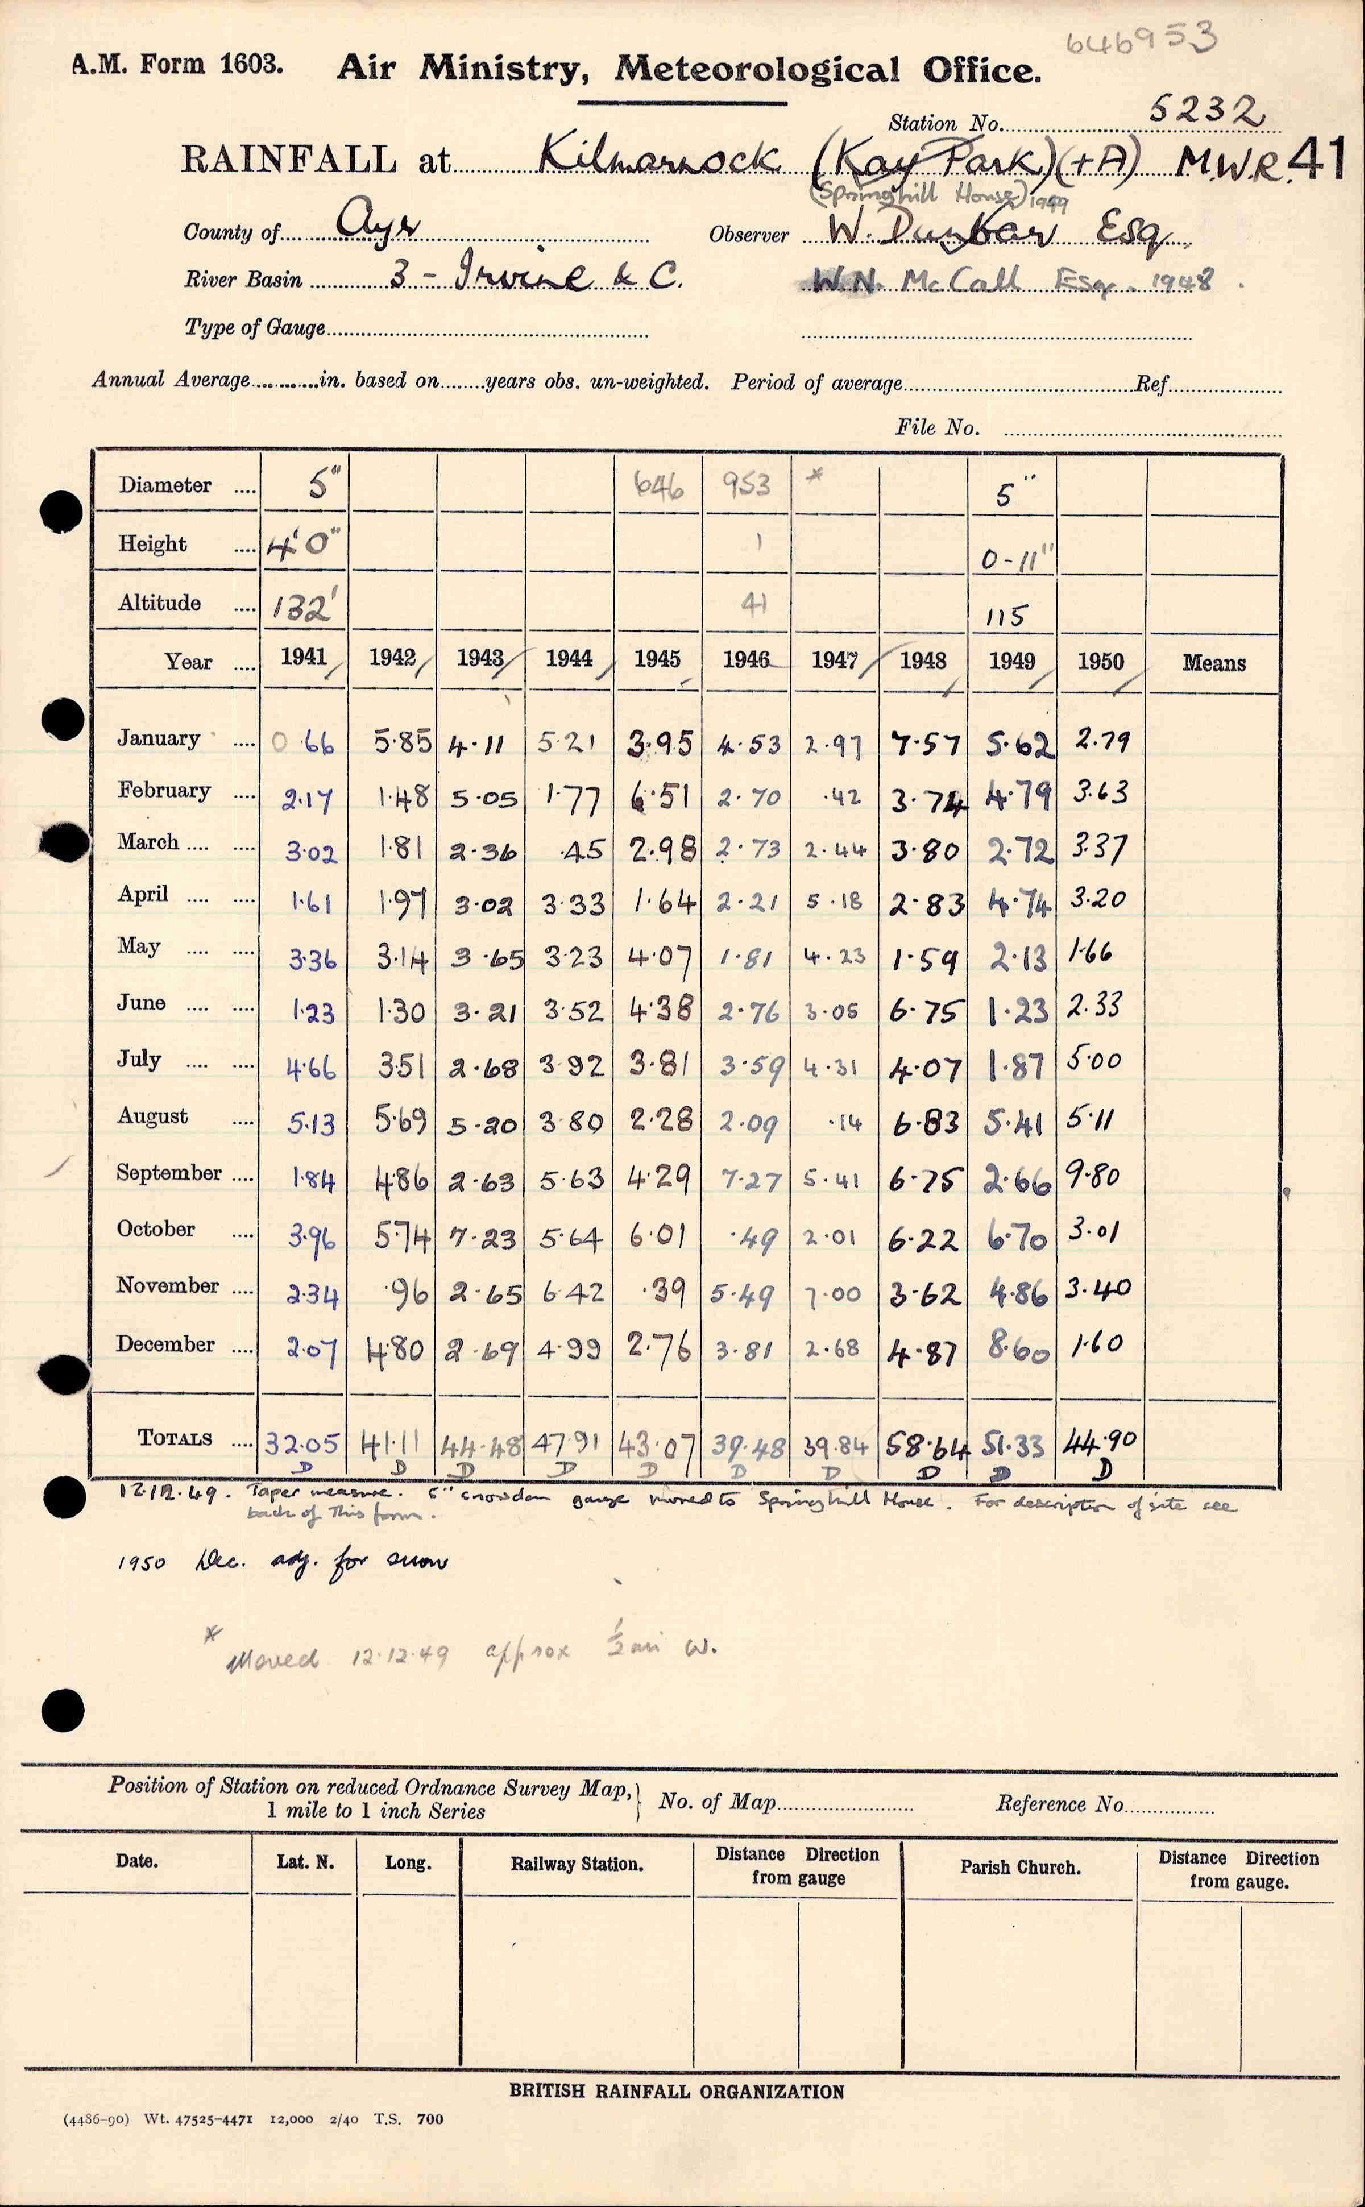 646953
A.M. Form 1603. Air Ministry, Meteorological Office.
Station No. 5232
RAINFALL at Kilmarnock (Kay Park) (+A) M.W.R. 41
(Springhill House) 1949
County of Ayr Observer W. Dunbar Esq.
River Basin 3 - Irvine & C. W.N. McCall Esq. 1948.
Type of Gauge
Annual Average in. based on years obs. un-weighted. Period of average Ref
File No.
Diameter 5" 646 953 * 5"
Height 4'0" 1 0-11"
Altitude 132' 41 115
Year 1941 1942 1943 1944 1945 1946 1947 1948 1949 1950 Means
January 0.66 5.85 4.11 5.21 3.95 4.53 2.97 7.57 5.62 2.79
February 2.17 1.48 5.05 1.77 6.51 2.70 .42 3.74 4.79 3.63
March 3.02 1.81 2.36 .45 2.98 2.73 2.44 3.80 2.72 3.37
April 1.61 1.97 3.02 3.33 1.64 2.21 5.18 2.83 4.74 3.20
May 3.36 3.14 3.65 3.23 4.07 1.81 4.23 1.59 2.13 1.66
June 1.23 1.30 3.21 3.52 4.38 2.76 3.05 6.75 1.23 2.33
July 4.66 3.51 2.68 3.92 3.81 3.59 4.31 4.07 1.87 5.00
August 5.13 5.69 5.20 3.80 2.28 2.09 .14 6.83 5.41 5.11
September 1.84 4.86 2.63 5.63 4.29 7.27 5.41 6.75 2.66 9.80
October 3.96 5.74 7.23 5.64 6.01 .49 2.01 6.22 6.70 3.01
November 2.34 .96 2.65 6.42 .39 5.49 7.00 3.62 4.86 3.40
December 2.07 4.80 2.69 4.99 2.76 3.81 2.68 4.87 8.60 1.60
TOTALS 32.05 41.11 44.48 47.91 43.07 39.48 39.84 58.64 51.33 44.90
D D D D D D D D D D
12.12.49. Taper measure. 5" snowdon gauge moved to Springhill House. For description of site see
back of this form.
1950 Dec. adj. for snow
* Moved 12.12.49 approx ½ mi W.
Position of Station on reduced Ordnance Survey Map, 1 mile to 1 inch Series No. of Map Reference No.
Date. Lat. N. Long. Railway Station. Distance Direction from gauge Parish Church. Distance Direction from gauge.
BRITISH RAINFALL ORGANIZATION
(4486-90) Wt. 47525-4471 12,000 2/40 T.S. 700